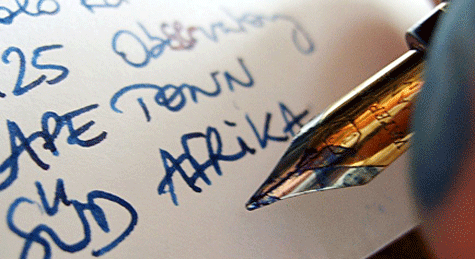 25 Observatory
APE TOWN
SÜD AFRIKA